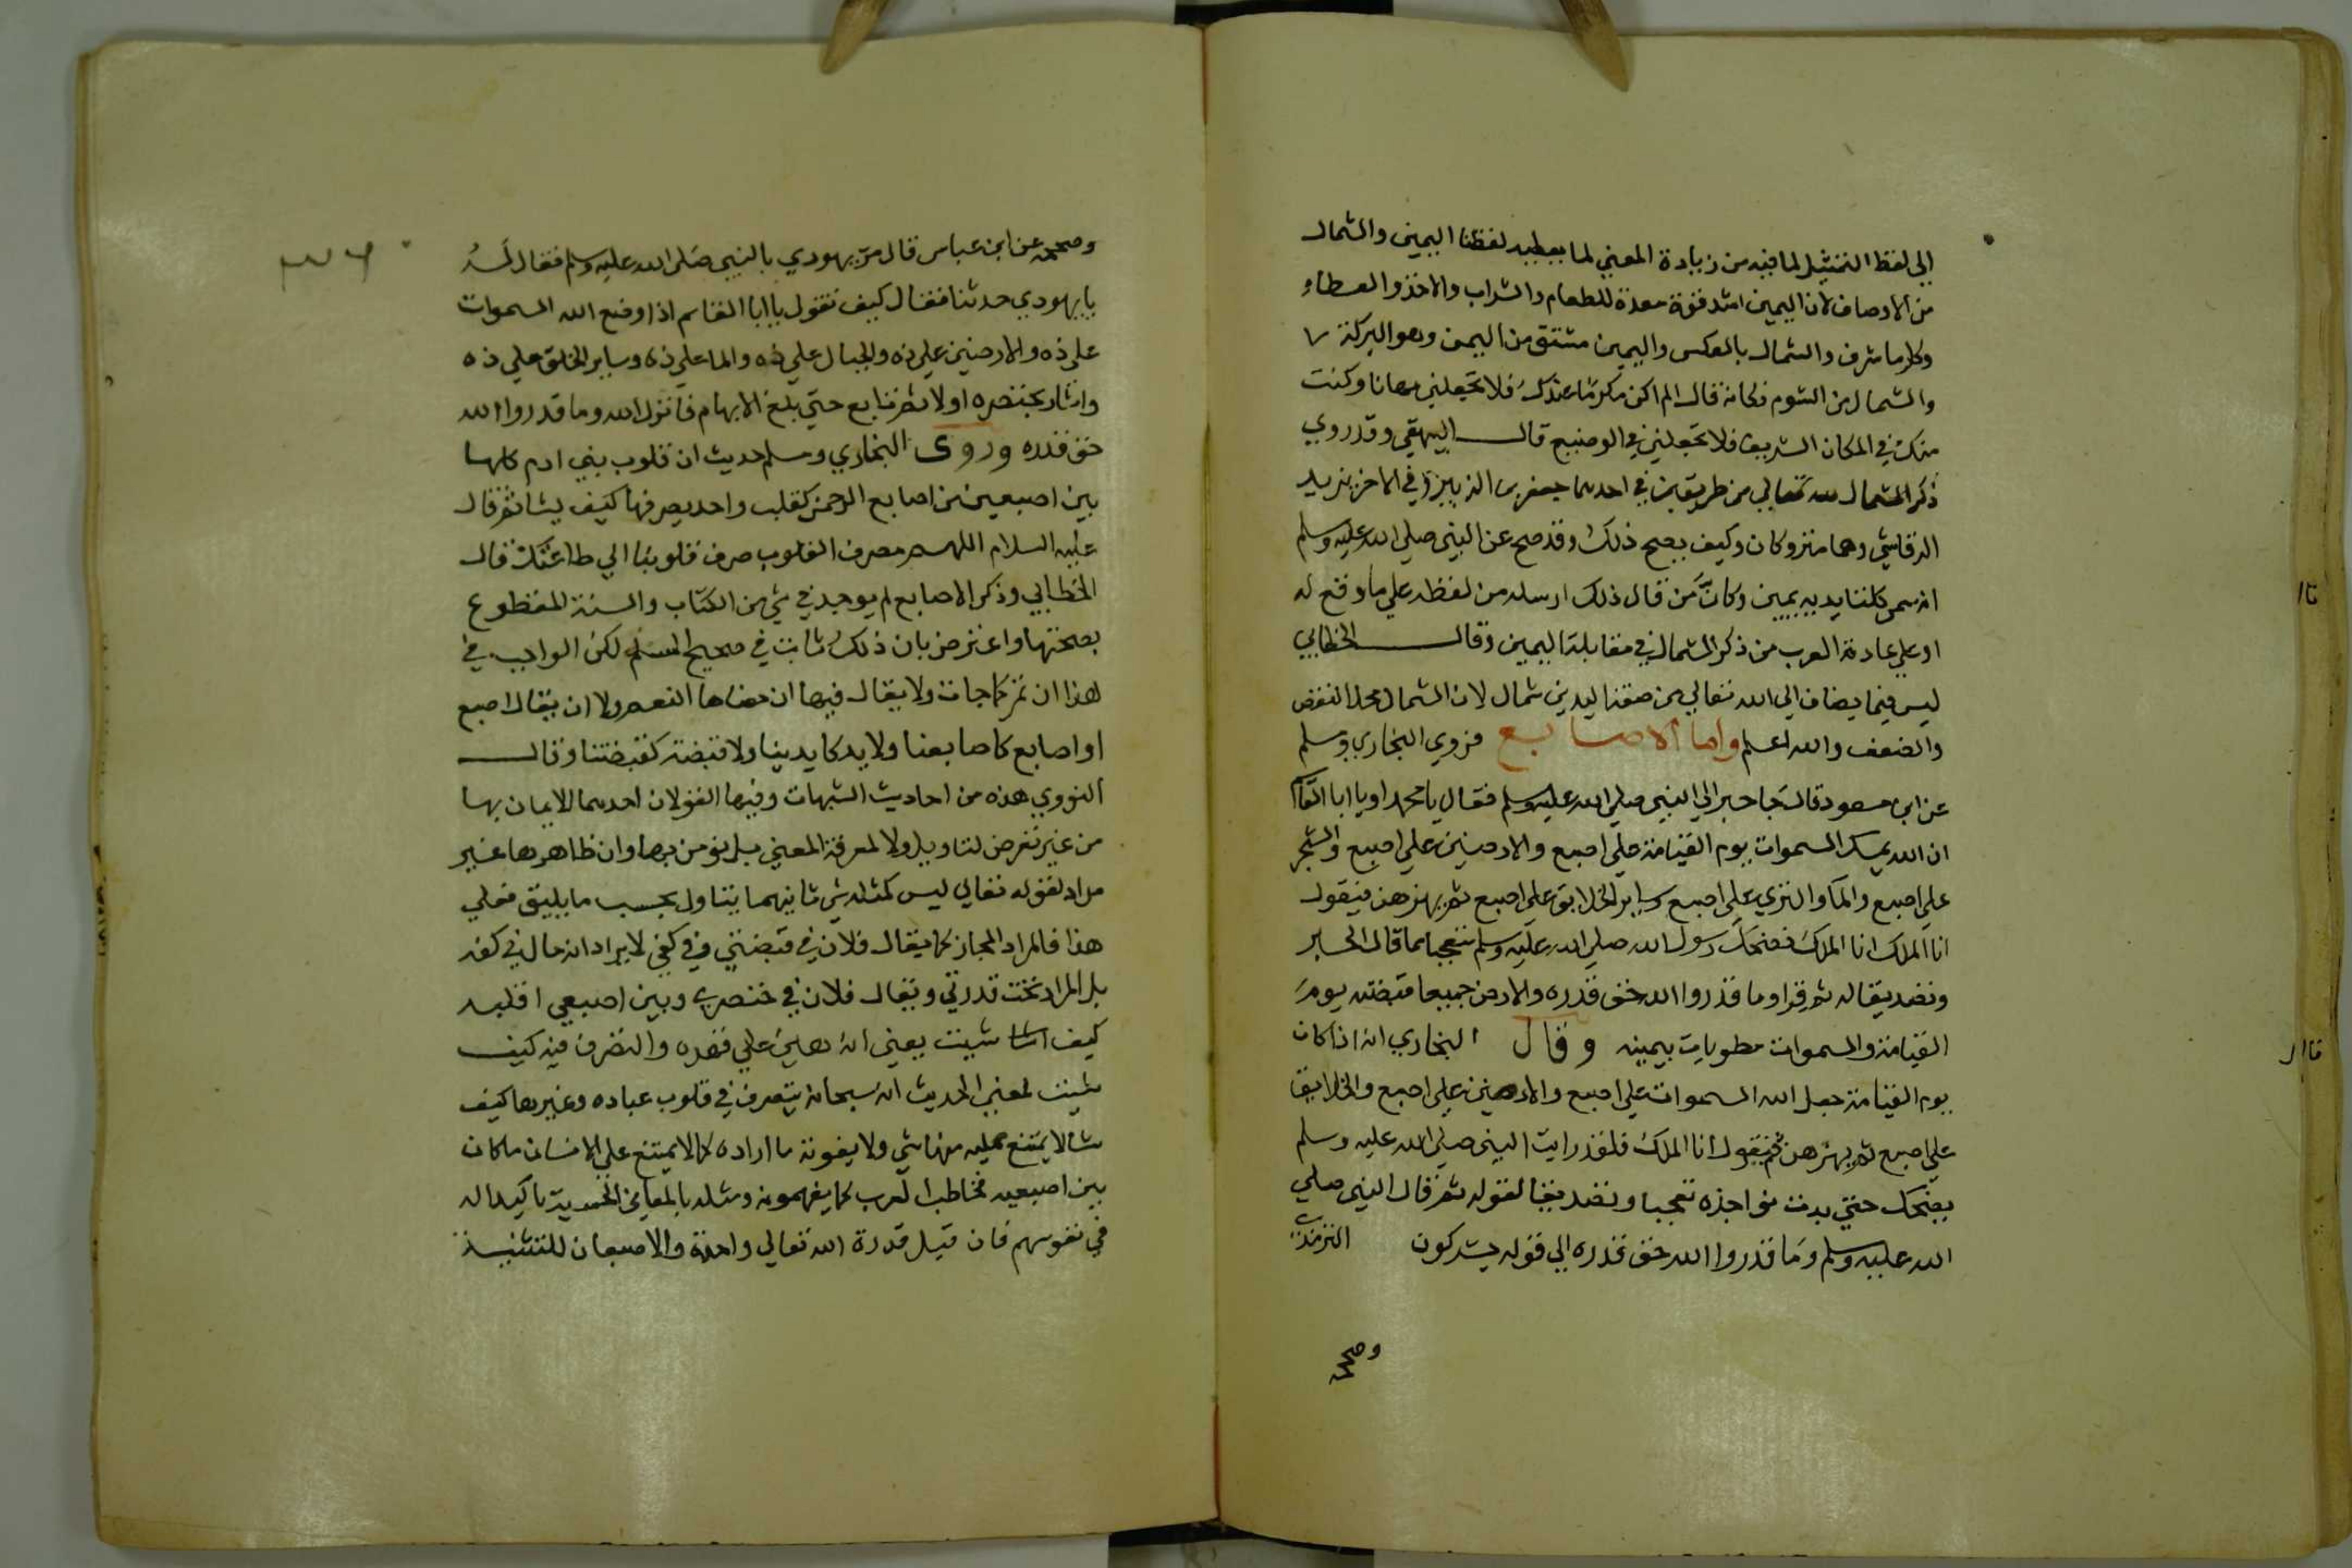 الى لفظ التمثيل لما فيه من زيادة المعني لما يعطيه لفظتا اليمين والشمال
من الاوصاف لان اليمين اشد فقوة معدة للطعام والشراب والاخذ والعطاء
وكل ما شرف والشمال بالعكس واليمين مشتق من اليمن وهو البركة
والشمال من الشوم فكانه قال الم اكن مكرما عندك فلا تجعلني مهانا وكنت
منك في المكان الشريف فلا تجعلني في الوضيع قال البيهقي وقد روي
ذكر الشمال لله تعالي من طريقين في احدهما جعفر بن الزبير وفي الاخر يزيد
الرقاشي وهما متروكان وكيف يصح ذلك وقد صح عن النبي صلي الله عليه وسلم
انه سمى كلتا يديه يمين وكان من قال ذلك ارسله من لفظه علي ما وقع له
او علي عادة العرب من ذكر الشمال في مقابلة اليمين وقال الخطابي
ليس فيما يضاف الي الله تعالي من صفة اليدين شمال لان الشمال محل النقص
والضعف والله اعلم واما الاصابع فروي البخاري ومسلم
عن ابن مسعود قال جا حبر الي النبي صلي الله عليه وسلم فقال يا محمد او يا ابا القاسم
ان الله يمسك السموات يوم القيامة علي اصبع والارضين علي اصبع والشجر
علي اصبع والما والثري علي اصبع وساير الخلايق علي اصبع ثم يهزهن فيقول
انا الملك انا الملك فضحك رسول الله صلي الله عليه وسلم تعجبا مما قال الحبر
وتصديقا له ثم قرا وما قدروا الله حق قدره والارض جميعا قبضته يوم
القيامة والسموات مطويات بيمينه وقال البخاري انه اذا كان
يوم القيامة جعل الله السموات علي اصبع والارضين علي اصبع والخلايق
علي اصبع ثم يهزهن ثم يقول انا الملك فلقد رايت النبي صلي الله عليه وسلم
يضحك حتي بدت نواجذه تعجبا وتصديقا لقوله ثم قال النبي صلي
الله عليه وسلم وما قدروا الله حق قدره الي قوله يشركون الترمذي
وصححه
وصححه عن ابن عباس قال مر يهودي بالنبي صلى الله عليه وسلم فقال له
يا يهودي حدثنا فقال كيف تقول يا ابا القاسم اذا وضع الله السموات
علي ذه والارضين علي ذه والجبال علي ذه والما علي ذه وساير الخلق علي ذه
واشار بخنصره اولا ثم تابع حتي بلغ الابهام فانزل الله وما قدروا الله
حق قدره وروى البخاري ومسلم حديث ان قلوب بني ادم كلها
بين اصبعين من اصابع الرحمن كقلب واحد يصرفها كيف يشا ثم قال
عليه السلام اللهم مصرف القلوب صرف قلوبنا الي طاعتك قال
الخطابي وذكر الاصابع لم يوجد في شي من الكتاب والسنة المقطوع
بصحتها واعترض بان ذلك ثابت في صحيح المسلم لكن الواجب في
هذا ان تمر كما جات ولا يقال فيها ان معناها النعم ولا ان يقال اصبع
او اصابع كاصابعنا ولا يد كايدينا ولا قبضة كقبضتنا وقال
النووي هذه من احاديث الشبهات وفيها القولان احدهما الايمان بها
من غير تعرض لتاويل ولا لمعرفة المعني بل يؤمن بها وان ظاهرها غير
مراد لقوله تعالي ليس كمثله شي ثانيهما يتناول بحسب ما يليق فعلي
هذا فالمراد المجاز كما يقال فلان في قبضتي وفي كفي لا يراد انه حال في كفه
بل المراد تحت قدرتي ويقال فلان في خنصري وبين اصبعي اقلبه
كيف شيت يعني انه هين علي قهره والتصرف فيه كيف
شيت لمعني الحديث انه سبحانه يتصرف في قلوب عباده وغيرها كيف
شا لا يمتنع عليه منها شي ولا يفوته ما اراده كما لا يمتنع علي الانسان ما كان
بين اصبعيه فخاطب العرب كما يفهمونه ومثله بالمعاني الحسية تاكيدا له
في نفوسهم فان قيل قدرة الله تعالي واحدة والاصبعان للتثنية